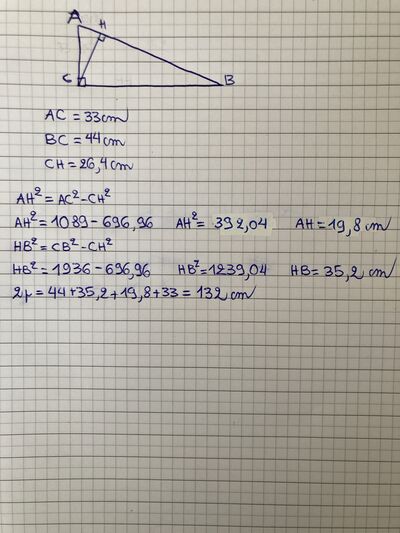 A
H
C
B
AC = 33cm
BC = 44cm
CH = 26,4cm
AH² = AC² - CH²
AH² = 1089 - 696,96 AH² = 392,04 AH = 19,8 cm
HB² = CB² - CH²
HB² = 1936 - 696,96 HB² = 1239,04 HB = 35,2 cm
2p = 44 + 35,2 + 19,8 + 33 = 132 cm